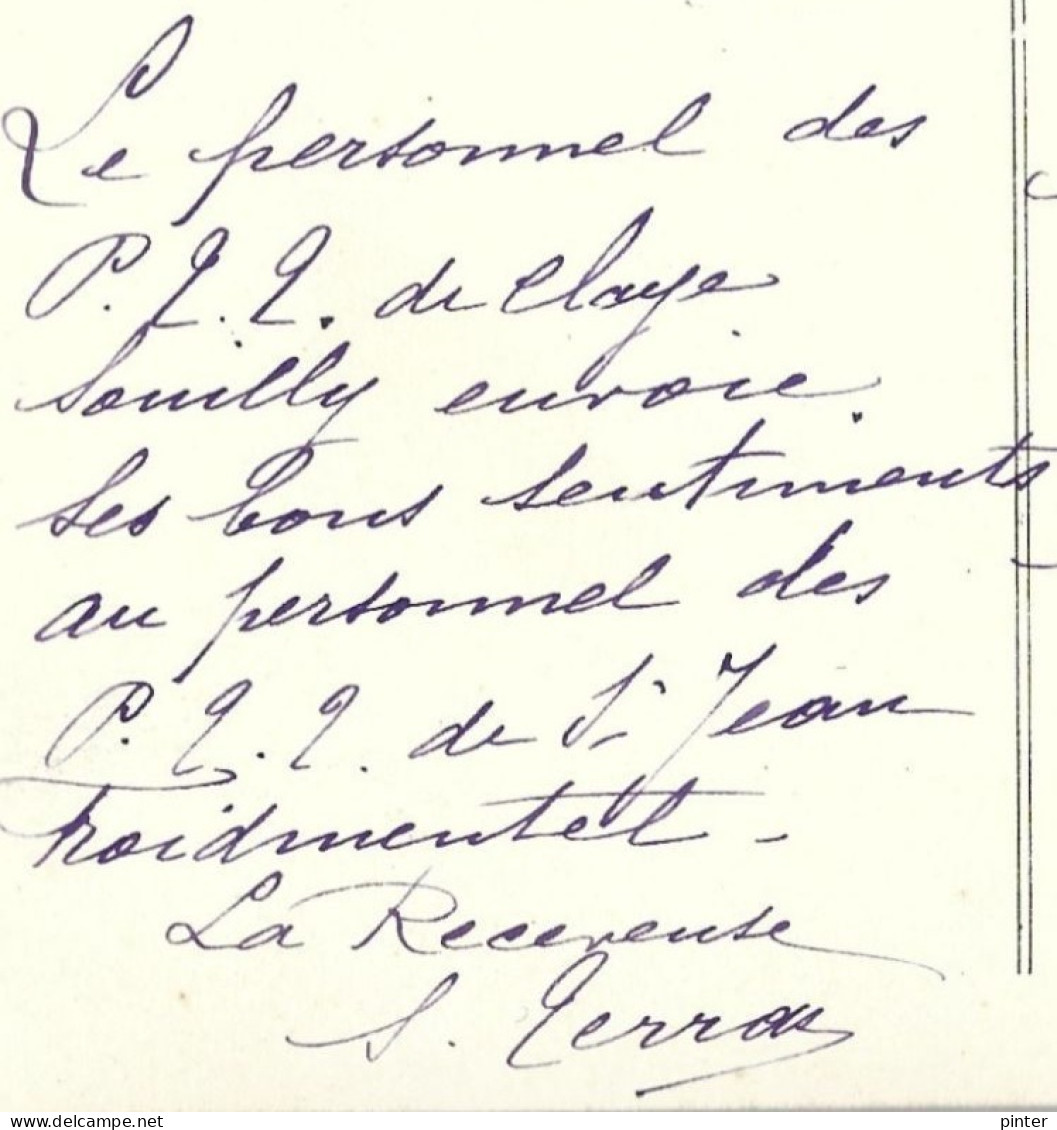 Le personnel des
P.T.T. de Claye
Souilly envoie
ses bons sentiments
au personnel des
P.T.T. de St Jean
Froidmentel -
La Receveuse
S. Terras
delcampe.net
pinter